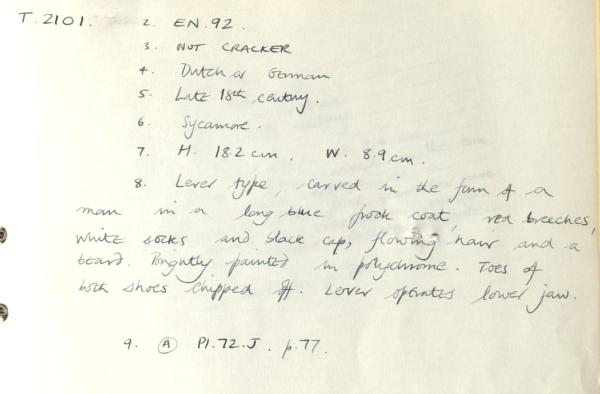 T.2101. 2. EN.92.
3. NOT CRACKER
4. Dutch or German
5. Late 18th century.
6. Sycamore.
7. H. 18.2 cm. W. 8.9 cm.
8. Lever type, carved in the form of a
man in a long blue frock coat, red breeches,
white socks and black cap, flowing hair and a
beard. Brightly painted in polychrome. Toes of
both shoes chipped off. Lever operates lower jaw.
9. A Pl.72.J. p.77.